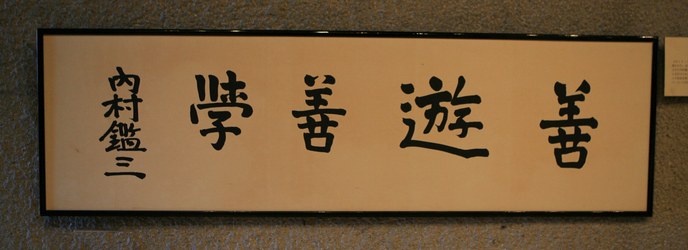 善遊善学
内村鑑三